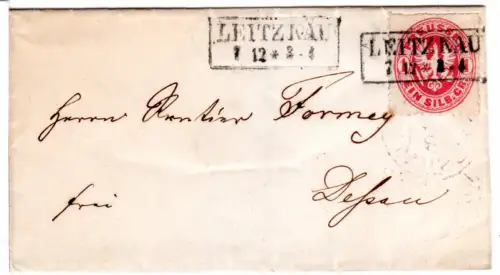 LEITZKAU
7 12 * 3-4
LEITZKAU
7 12 * 3-4
PREUSSEN
EIN SILB. GR.
Herrn Rentier Formey
frei
Dessau